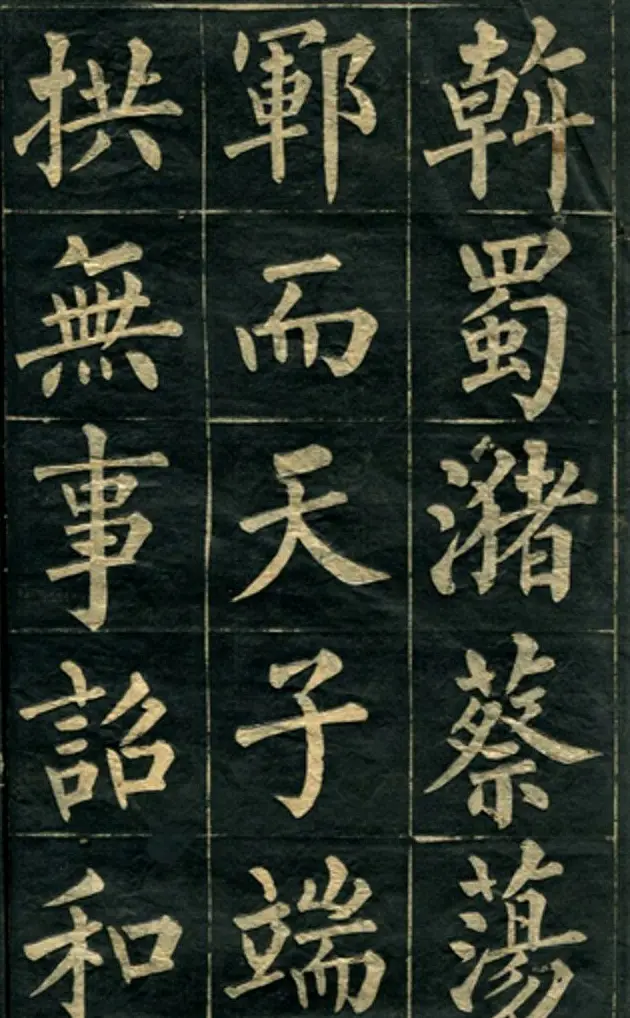 斡蜀瀦蔡蕩
鄆而天子端
拱無事詔和